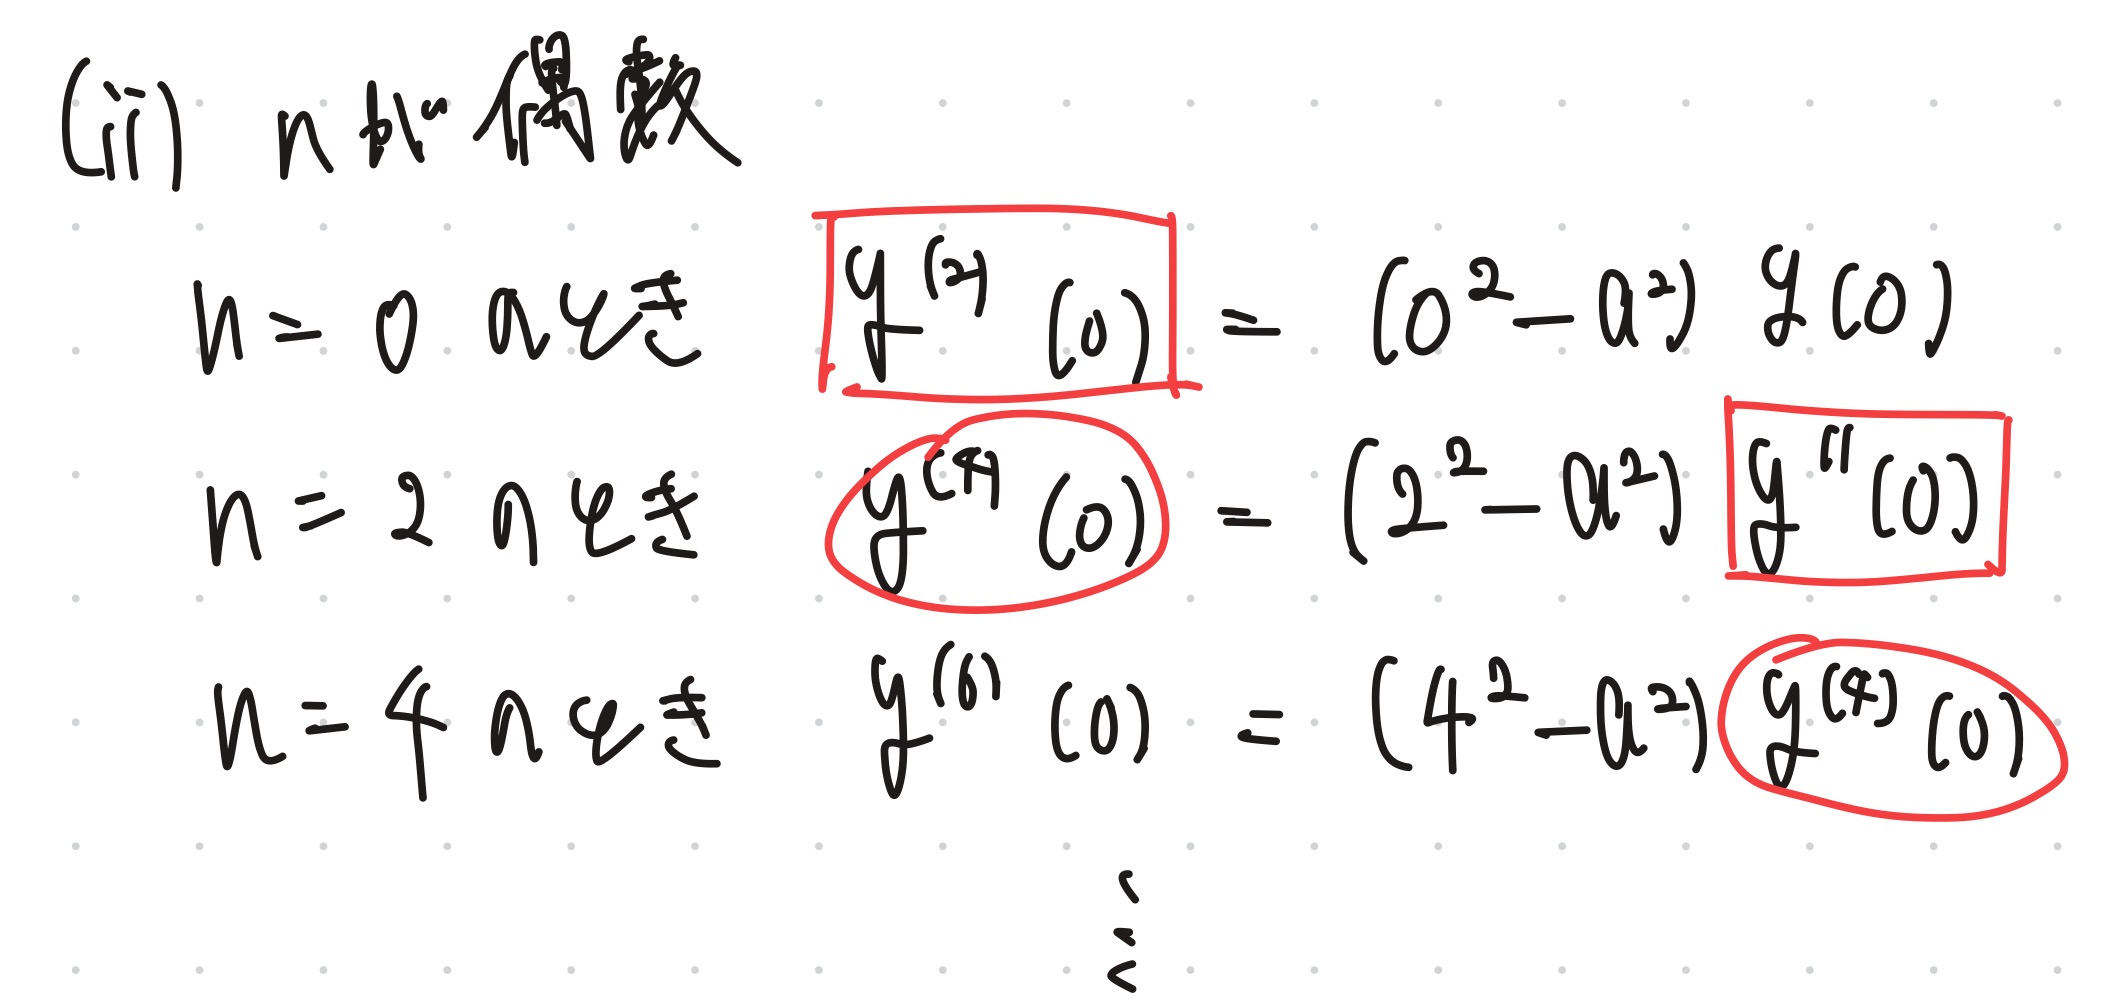 (ii) nが偶数
n=0のとき y^(2)(0) = (0^2-a^2) y(0)
n=2のとき y^(4)(0) = (2^2-a^2) y''(0)
n=4のとき y^(6)(0) = (4^2-a^2) y^(4)(0)
⋮